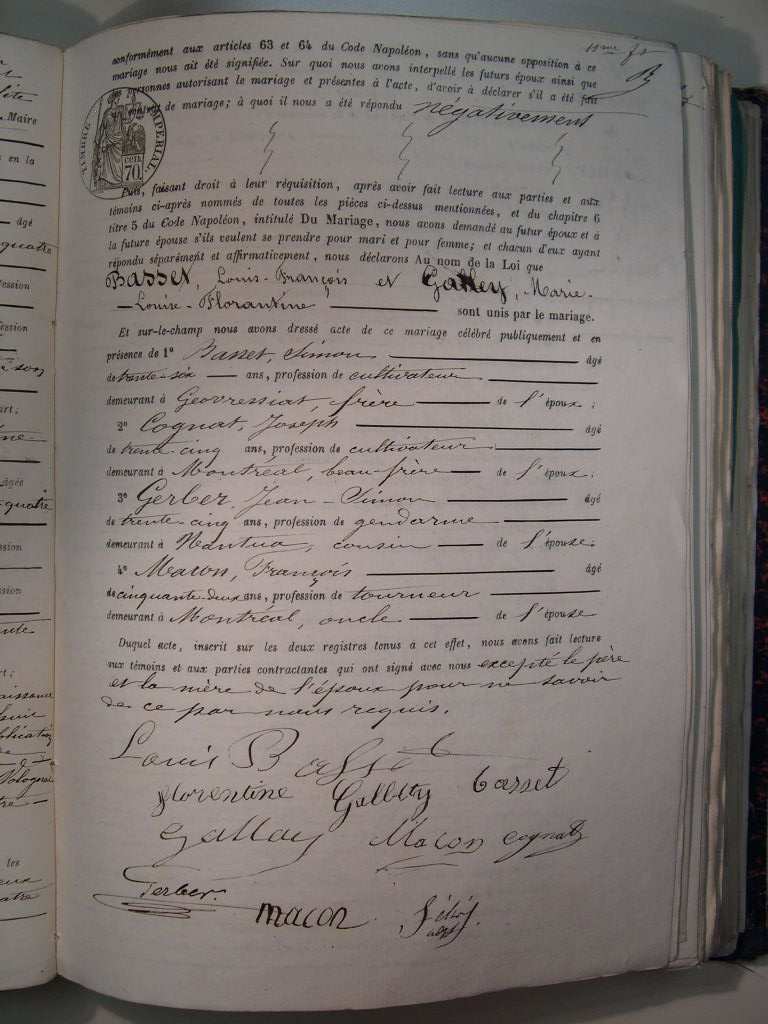 conformément aux articles 63 et 64 du Code Napoléon, sans qu'aucune opposition à ce
mariage nous ait été signifiée. Sur quoi nous avons interpellé les futurs époux ainsi que
les personnes autorisant le mariage et présentes à l'acte, d'avoir à déclarer s'il a été fait
contrat de mariage; à quoi il nous a été répondu négativement
TIMBRE IMPERIAL
CENT.
70.
Puis, faisant droit à leur réquisition, après avoir fait lecture aux parties et aux
témoins ci-après nommés de toutes les pièces ci-dessus mentionnées, et du chapitre 6
titre 5 du Code Napoléon, intitulé Du Mariage, nous avons demandé au futur époux et à
la future épouse s'ils veulent se prendre pour mari et pour femme; et chacun d'eux ayant
répondu séparément et affirmativement, nous déclarons Au nom de la Loi que
Basset, Louis-François et Galley, Marie-
Louise-Florantine sont unis par le mariage.
Et sur-le-champ nous avons dressé acte de ce mariage célébré publiquement et en
présence de 1° Basset, Simon âgé
de trente-six ans, profession de cultivateur
demeurant à Geovressiat, frère de l'époux;
2° Cognat, Joseph âgé
de trente-cinq ans, profession de cultivateur
demeurant à Montréal, beau-frère de l'époux;
3° Gerber, Jean-Simon âgé
de trente-cinq ans, profession de gendarme
demeurant à Nantua, cousin de l'épouse;
4° Macon, François âgé
de cinquante-deux ans, profession de tourneur
demeurant à Montréal, oncle de l'épouse
Duquel acte, inscrit sur les deux registres tenus à cet effet, nous avons fait lecture
aux témoins et aux parties contractantes qui ont signé avec nous excepté le père
et la mère de l'époux pour ne savoir
de ce par nous requis.
Louis Basset
florentine Galley basset
Gallay Macon cognat
Gerber.
macon
Maire
en la
âgé
quatre
ession